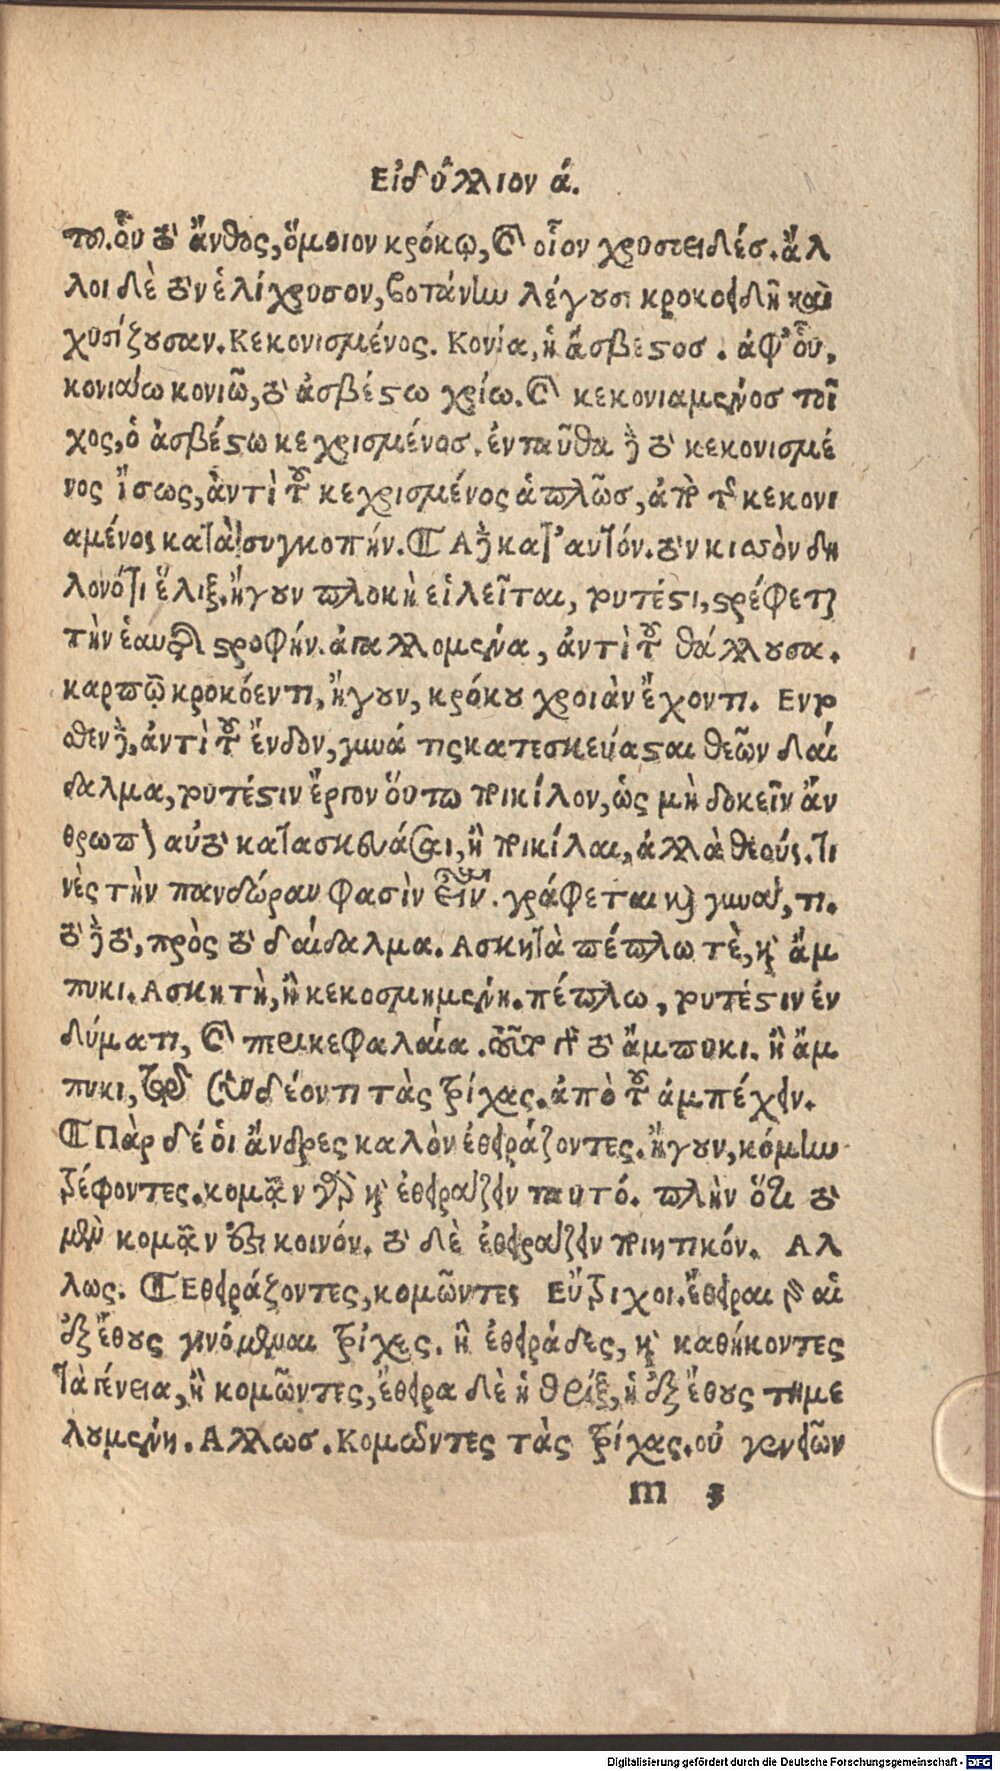 Εἰδύλλιον ά.
του. οὗ τὸ ἄνθος, ὅμοιον κρόκῳ, καὶ οἷον χρυσοειδές. ἄλ
λοι δὲ τὸν ἑλίχρυσον, βοτάνην λέγουσι κροκοειδῆ καὶ
χυσίζουσαν. Κεκονισμένος. Κονία, ἡ ἄσβεστος. ἀφ' οὗ,
κονιαίω κονιῶ, τὸ ἀσβέστω χρίω. καὶ κεκονιαμένος τοῖ
χος, ὁ ἀσβέστω κεχρισμένος. ἐνταῦθα δὲ τὸ κεκονισμέ
νος ἴσως, ἀντὶ τοῦ κεχρισμένος ἁπλῶς, ἀπὸ τοῦ κεκονι
αμένος κατὰ συγκοπήν. Α δὲ κατ' αὐτόν. τὸν κισσὸν δη
λονότι ἕλιξ. ἤγουν πλοκὴ εἱλεῖται, τουτέστι, στρέφεται
τὴν ἑαυτῆς στροφήν. ἀγαλλομένα, ἀντὶ τοῦ θάλλουσα.
καρπῷ κροκόεντι, ἤγουν, κρόκου χροιὰν ἔχοντι. Εντο
θεν δὲ, ἀντὶ τοῦ ἔνδον, γυνά τις κατεσκεύασται θεῶν δαί
δαλμα, τουτέστιν ἔργον οὕτω ποικίλον, ὡς μὴ δοκεῖν ἄν
θρωπον αὐτὸ κατασκευάσαι, ἢ ποικίλαι, ἀλλὰ θεούς. τι
νὲς τὴν πανδώραν φασὶν εἶναι. γράφεται καὶ γυναὶ, τι.
τὸ δὲ τὸ, πρὸς τὸ δαίδαλμα. Ασκητὰ πέπλω τὲ, καὶ ἄμ
πυκι. Ασκητὴ, ἢ κεκοσμημένη. πέπλω, τουτέστιν ἐν
δύματι, καὶ περικεφαλαία. τοῦτο γὰρ τὸ ἄμπυκι. ἢ ἄμ
πυκι, τῷ συνδέοντι τὰς τρίχας. ἀπὸ τοῦ ἀμπέχειν.
Πὰρ δέ οἱ ἄνδρες καλὸν ἐθειράζοντες. ἤγουν, κόμην
τρέφοντες. κομᾷν γὰρ καὶ ἐθειραίζειν ταυτό. πλὴν ὅτι τὸ
μὲν κομᾷν ἐστι κοινόν. τὸ δὲ ἐθειραίζειν ποιητικόν. Αλ
λως. Εθειράζοντες, κομῶντες Εὔτριχοι. ἔθειραι γὰρ αἱ
ἐξ ἔθους γινόμεναι τρίχες. ἢ ἐθειράδες, καὶ καθήκοντες
τὰ γένεια, ἢ κομῶντες, ἔθειρα δὲ ἡ θρίξ, ἡ ἐξ ἔθους τημε
λουμένη. Αλλως. Κομῶντες τὰς τρίχας. οὐ γενειῶν
m 3
Digitalisierung gefördert durch die Deutsche Forschungsgemeinschaft - DFG